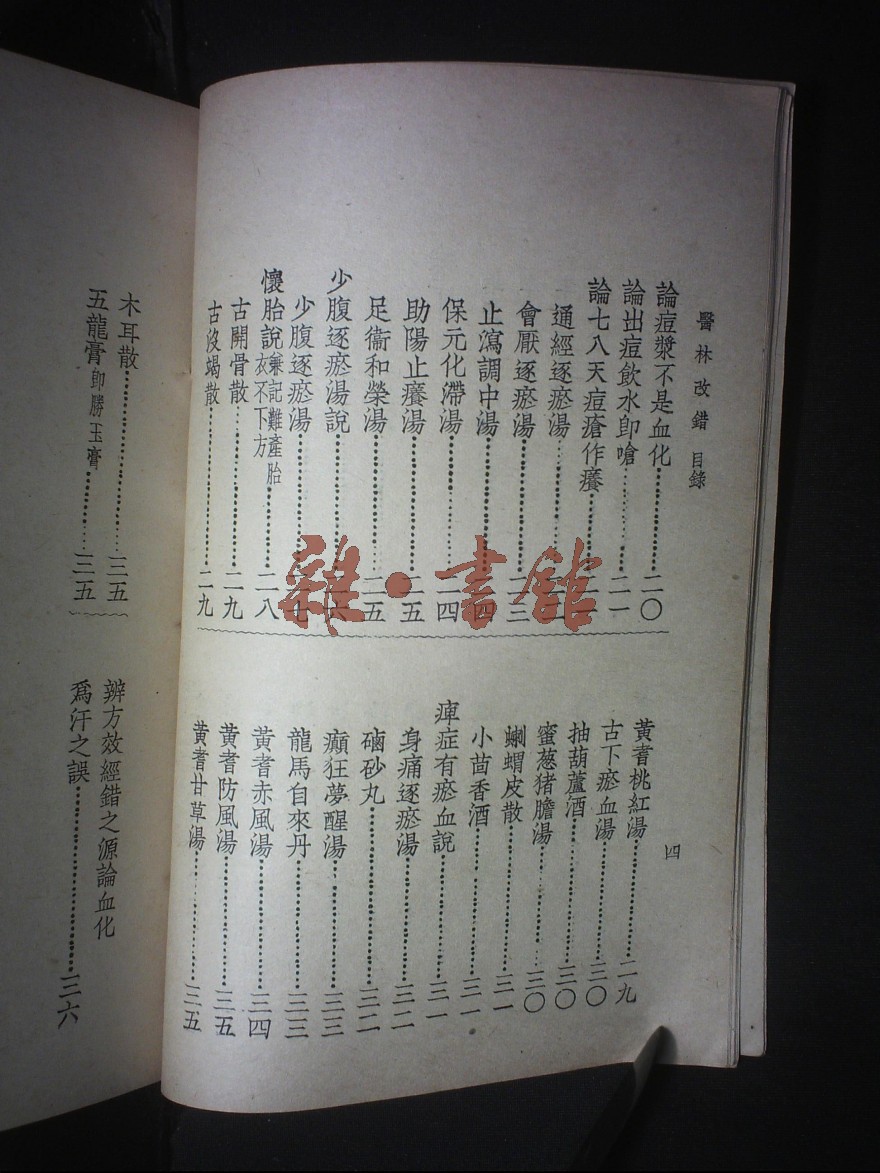 醫林改錯 目錄
論痘漿不是血化……二〇
論出痘飲水卽嗆……二一
論七八天痘瘡作癢……二一
通經逐瘀湯……二二
會厭逐瘀湯……二三
止瀉調中湯……二四
保元化滯湯……二四
助陽止癢湯……二五
足衞和榮湯……二五
少腹逐瘀湯說……二六
少腹逐瘀湯……二七
懷胎說 兼記難產胎衣不下方……二八
古開骨散……二九
古沒竭散……二九
四
黃耆桃紅湯……二九
古下瘀血湯……三〇
抽葫蘆酒……三〇
蜜葱猪膽湯……三〇
蝲蝟皮散……三一
小茴香酒……三一
痺症有瘀血說……三一
身痛逐瘀湯……三二
磠砂丸……三二
癲狂夢醒湯……三三
龍馬自來丹……三三
黃耆赤風湯……三四
黃耆防風湯……三五
黃耆甘草湯……三五
木耳散……三五
五龍膏 卽勝玉膏……三五
辨方效經錯之源論血化
爲汗之誤……三六
雜·書館